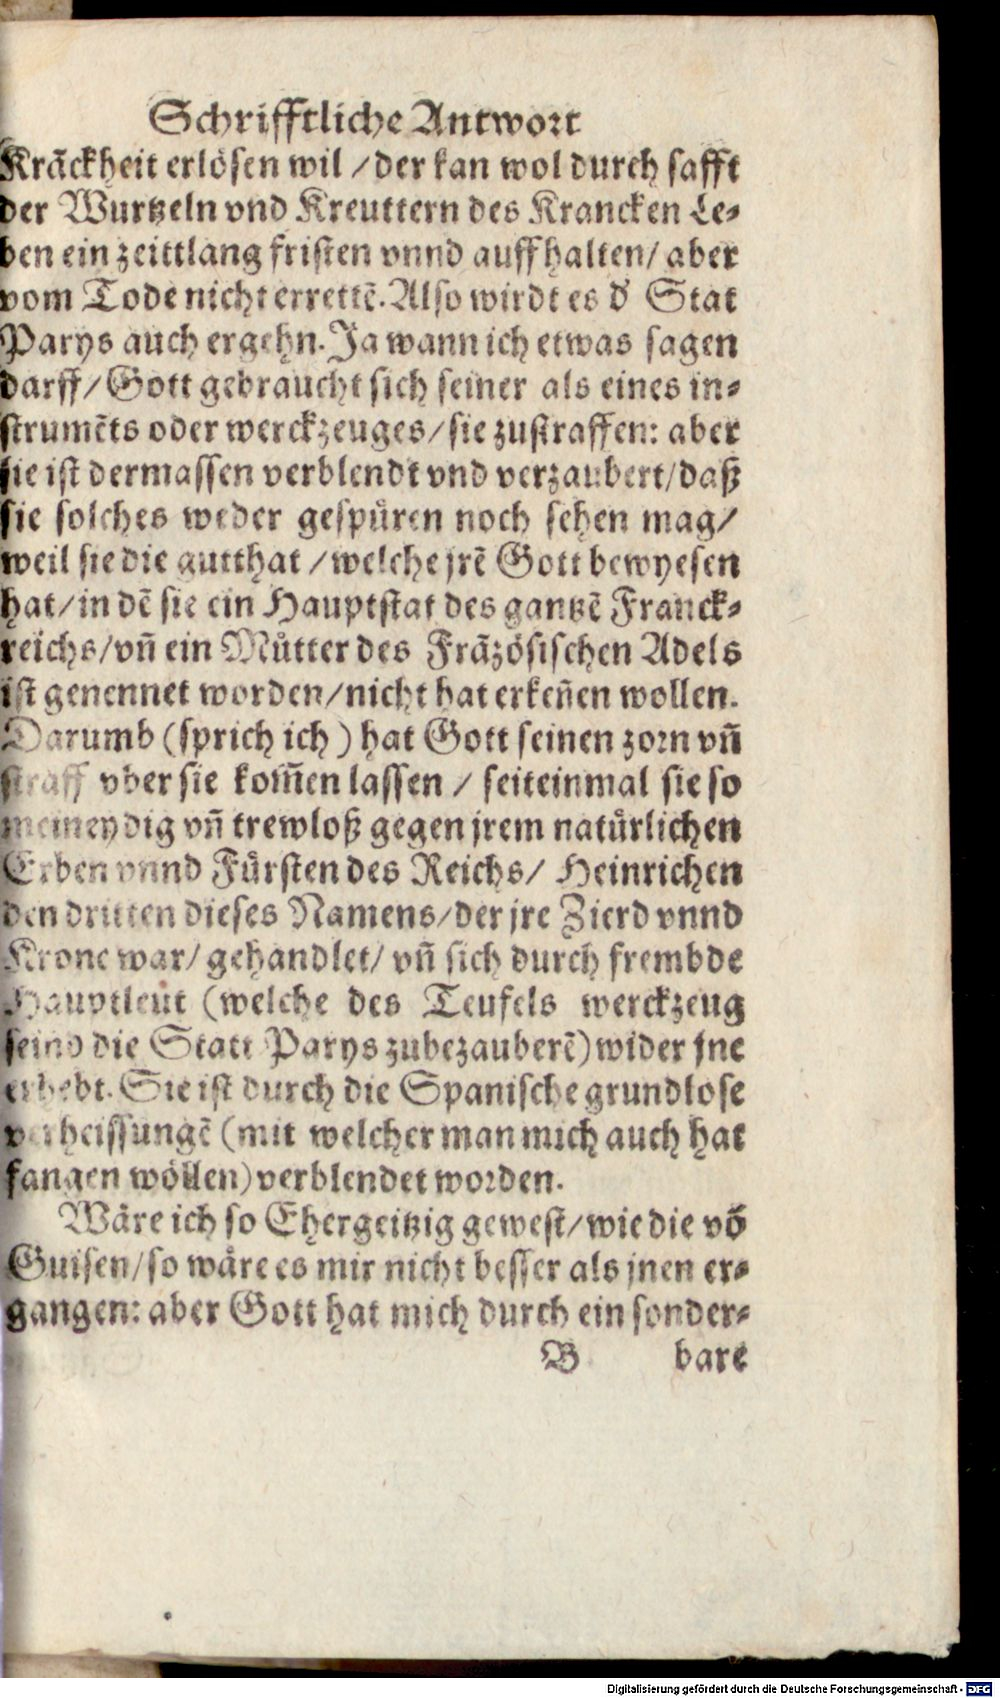 Schrifftliche Antwort
Krãckheit erlösen wil / der kan wol durch safft
der Wurtzeln vnd Kreuttern des Krancken Le-
ben ein zeittlang fristen vnnd auffhalten/ aber
vom Tode nicht errettẽ. Also wirdt es d' Stat
Parys auch ergehn. Ja wann ich etwas sagen
darff/ Gott gebraucht sich seiner als eines in-
strumẽts oder werckzeuges/ sie zustraffen: aber
sie ist dermassen verblendt vnd verzaubert/ daß
sie solches weder gespüren noch sehen mag/
weil sie die gutthat / welche jrẽ Gott bewyesen
hat/ in dẽ sie ein Hauptstat des gantzẽ Franck-
reichs/ vñ ein Můtter des Frãzösischen Adels
ist genennet worden/ nicht hat erkeñen wollen.
Darumb (sprich ich) hat Gott seinen zorn vñ
straff vber sie kom̃en lassen / seiteinmal sie so
meineydig vñ trewloß gegen jrem natürlichen
Erben vnnd Fürsten des Reichs/ Heinrichen
den dritten dieses Namens/ der jre Zierd vnnd
Krone war/ gehandlet/ vñ sich durch frembde
Hauptleut (welche des Teufels werckzeug
seind die Statt Parys zubezauberẽ) wider jne
erhebt. Sie ist durch die Spanische grundlose
verheissungẽ (mit welcher man mich auch hat
fangen wöllen) verblendet worden.
Wäre ich so Ehergeitzig gewest/ wie die võ
Guisen/ so wäre es mir nicht besser als jnen er-
gangen: aber Gott hat mich durch ein sonder-
B bare
Digitalisierung gefördert durch die Deutsche Forschungsgemeinschaft - DFG